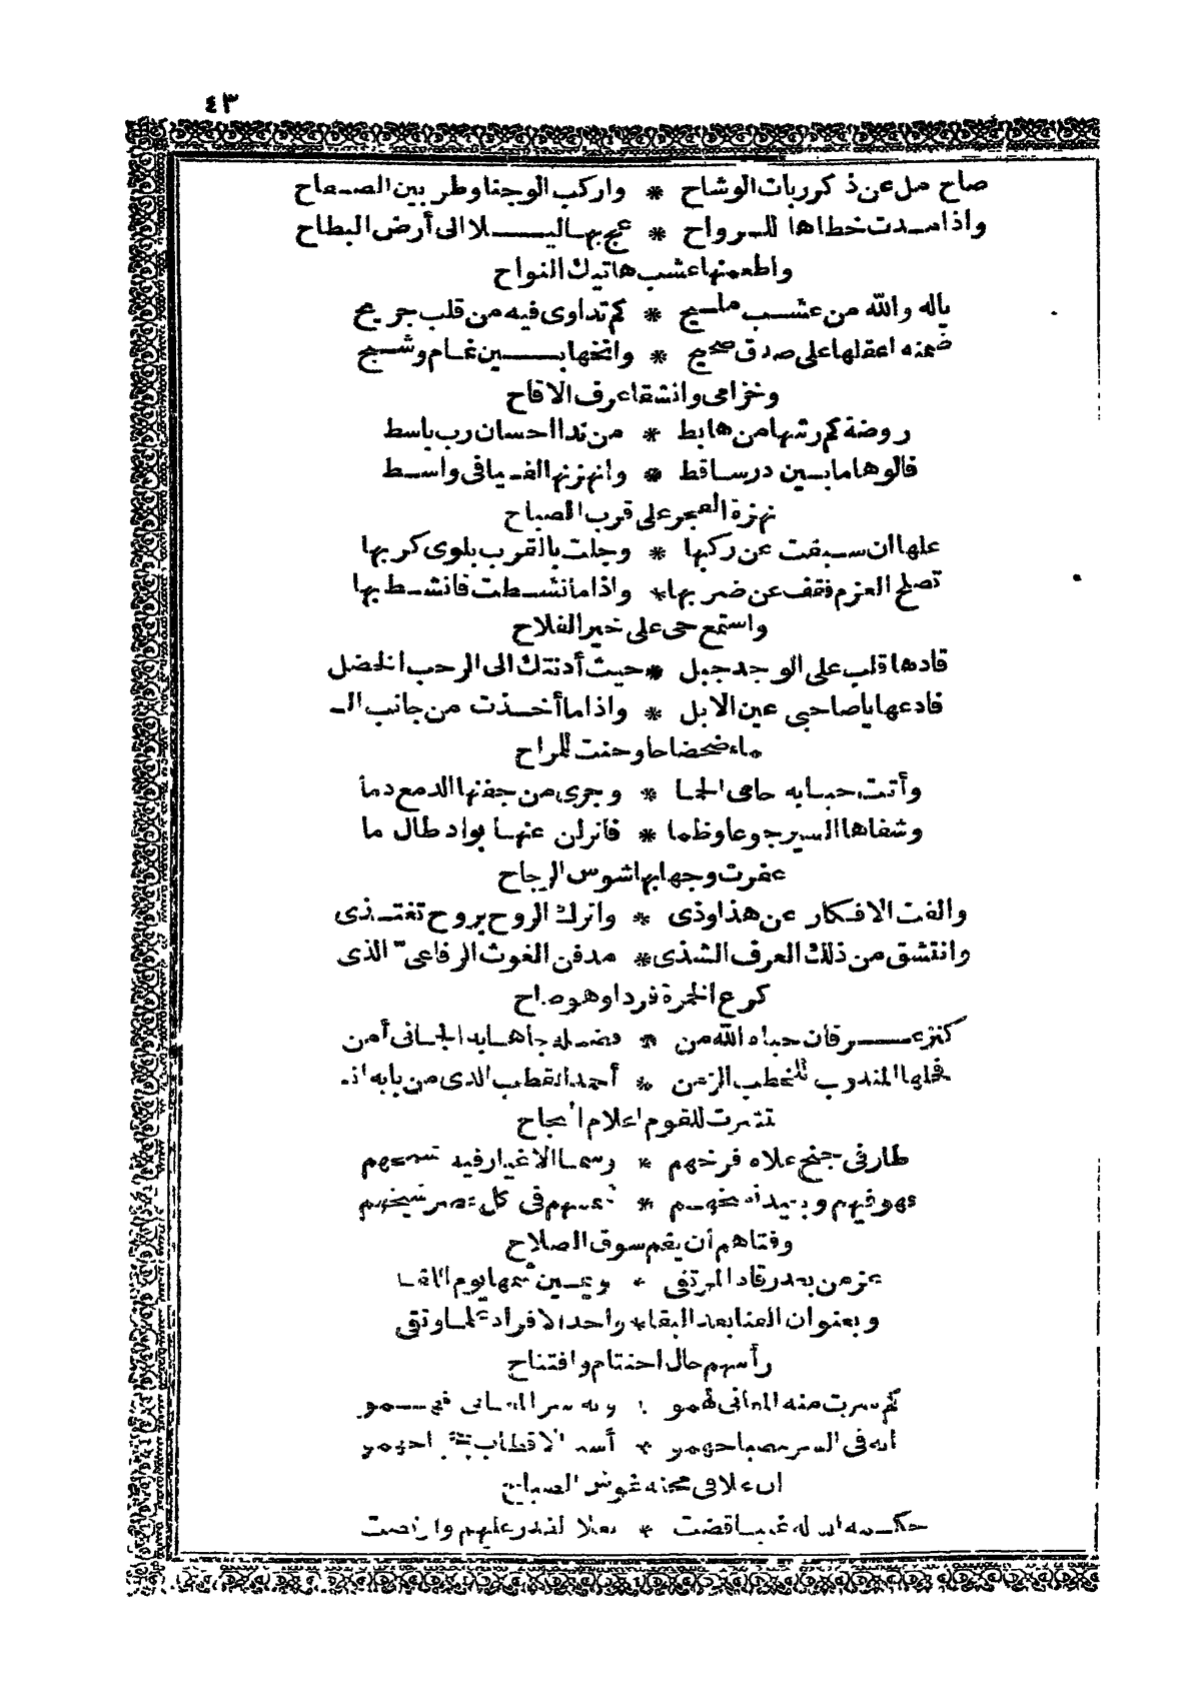 ٤٣
صاح مل عن ذكر ربات الوشاح * واركب الوجنا وطر بين الصفاح
واذا مدت خطاها للرواح * عج بها ليلا الى أرض البطاح
واطعمنها عشب هاتيك النواح
ياله والله من عشب مليح * كم تداوى فيه من قلب جريح
ضمنه اعقلها على صدق صحيح * وانخها بين غام وشيح
وخزامى وانشقا عرف الاقاح
روضة كم رشها من هابط * من ندا احسان رب باسط
فالوها مابين در ساقط * وانهزنها الفيافى واسط
نهزة الفجر على قرب الصباح
علها ان سبقت عن ركبها * وجلت بالقرب بلوى كربها
تصلح العزم فقف عن ضربها * واذا ما نشطت فانشط بها
واستمع حى على خير الفلاح
قادها قلب على الوجد جبل * حيث أدنتك الى الرحب الخضل
فادعها ياصاحبى عين الابل * واذا ما أخذت من جانب الـ
ماء ضحضاحا وحنت للمراح
وأتت حبابه حامى الحما * وجرى من جفنها الدمع دما
وشفاها السير جوعا وظما * فانزلن عنها بواد طال ما
عفرت وجها بها شوس الرجاح
والفت الافكار عن هذا وذى * واترك الروح بروح تغتذى
وانتشق من ذلك العرف الشذى * مدفن الغوث الرفاعىّ الذى
كرع الخمرة فردا وهو صاح
كنز عرفان حباه الله من * فضله جاها به الجانى أمن
فحلها المندوب للخطب الزمن * أحمد القطب الذى من بابه اذ
نشرت للقوم اعلام النجاح
طار فى جنح علاه فرخهم * رسما الاغيار فيه نسخهم
فهو فيهم * فى كل عصر شيخهم
وفتاهم أن يقم سوق الصلاح
عز من بعد رقاد المرتقى * وبعين شمها يوم اللقا
وبعنوان الفنا بعد البقا * واحد الافراد علما وتقى
رأسهم حال اختتام وافتتاح
كم سرت منه المعانى نحو * وبه سر
انه فى السر مصباح * أسد الاقطاب
ان علا فى غوث الصباح
حكمة الله غيبا قضت * لقدر عليهم وارتضت